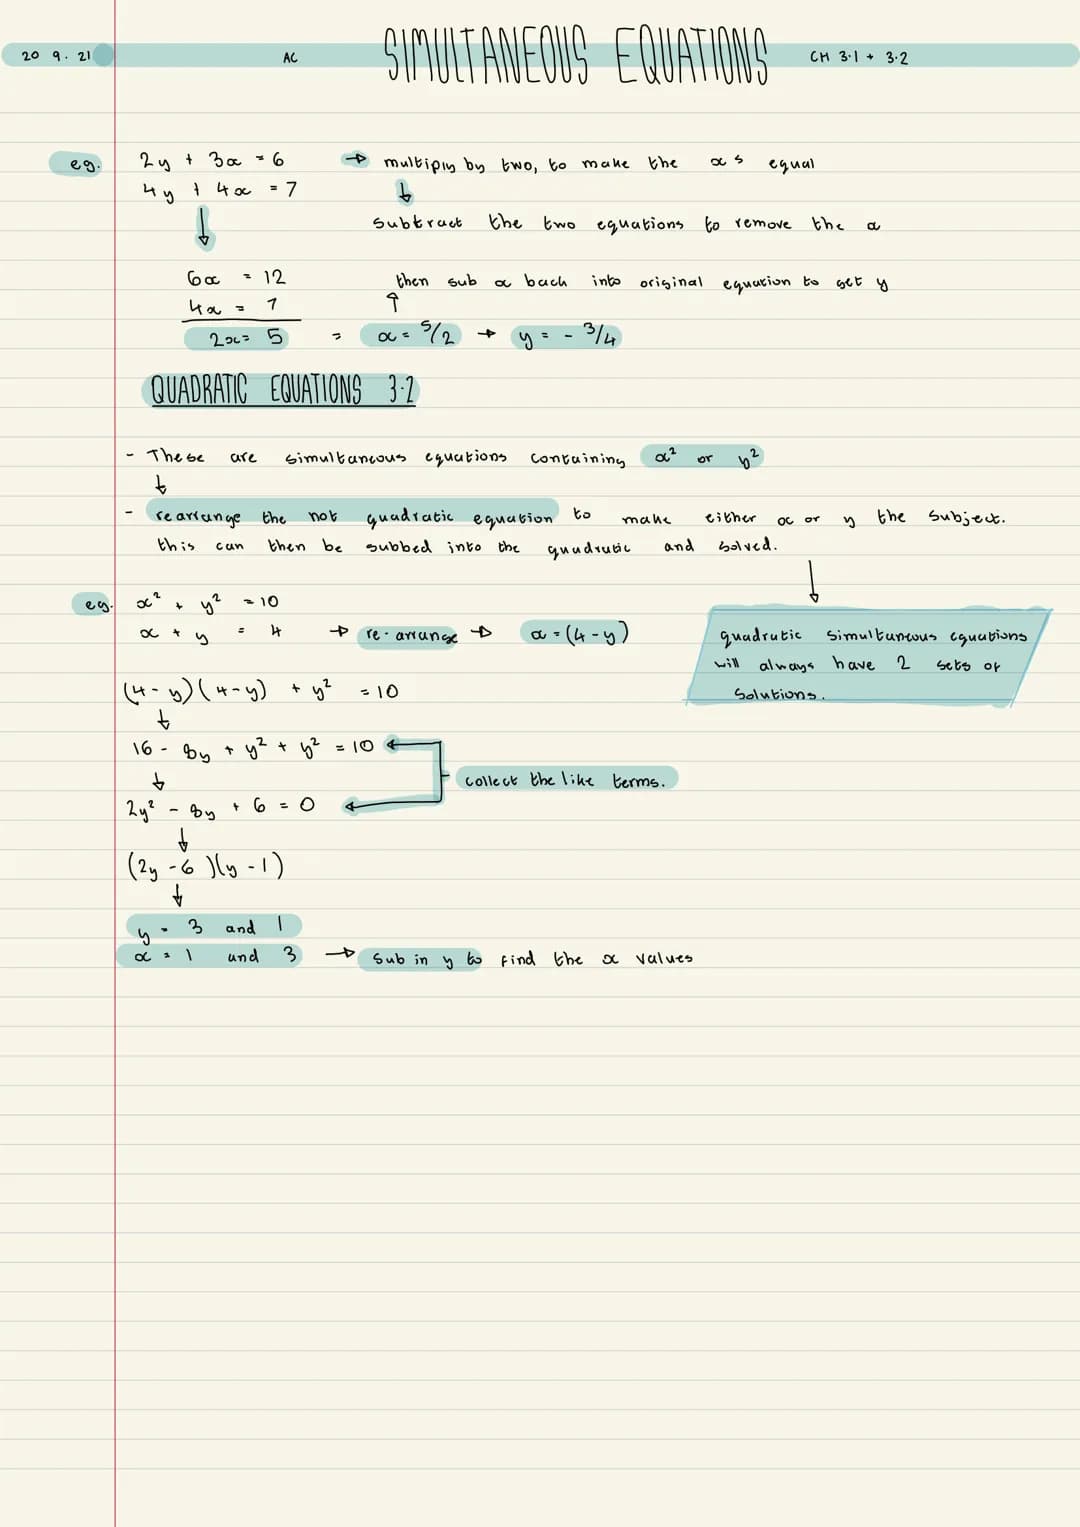 20 9.21 AC SIMULTANEOUS EQUATIONS CH 3.1 + 3.2
eg. 2y + 3x = 6 → multiply by two, to make the x s equal
4y + 4x = 7 ↓
↓ subtract the two equations to remove the x
6x = 12 then sub x back into original equation to get y
4x = 7 ↑
2x = 5 = x = 5/2 → y = - 3/4
QUADRATIC EQUATIONS 3.2
- These are simultaneous equations containing x² or y²
↓
- rearrange the not quadratic equation to make either x or y the subject.
this can then be subbed into the quadratic and solved.
↓
eg. x² + y² = 10
x + y = 4 → re-arrange → x = (4 - y)
quadratic simultaneous equations
will always have 2 sets of
solutions.
(4 - y)(4 - y) + y² = 10
↓
16 - 8y + y² + y² = 10
↓ collect the like terms.
2y² - 8y + 6 = 0
↓
(2y - 6)(y - 1)
↓
y = 3 and 1
x = 1 and 3 → Sub in y to find the x values